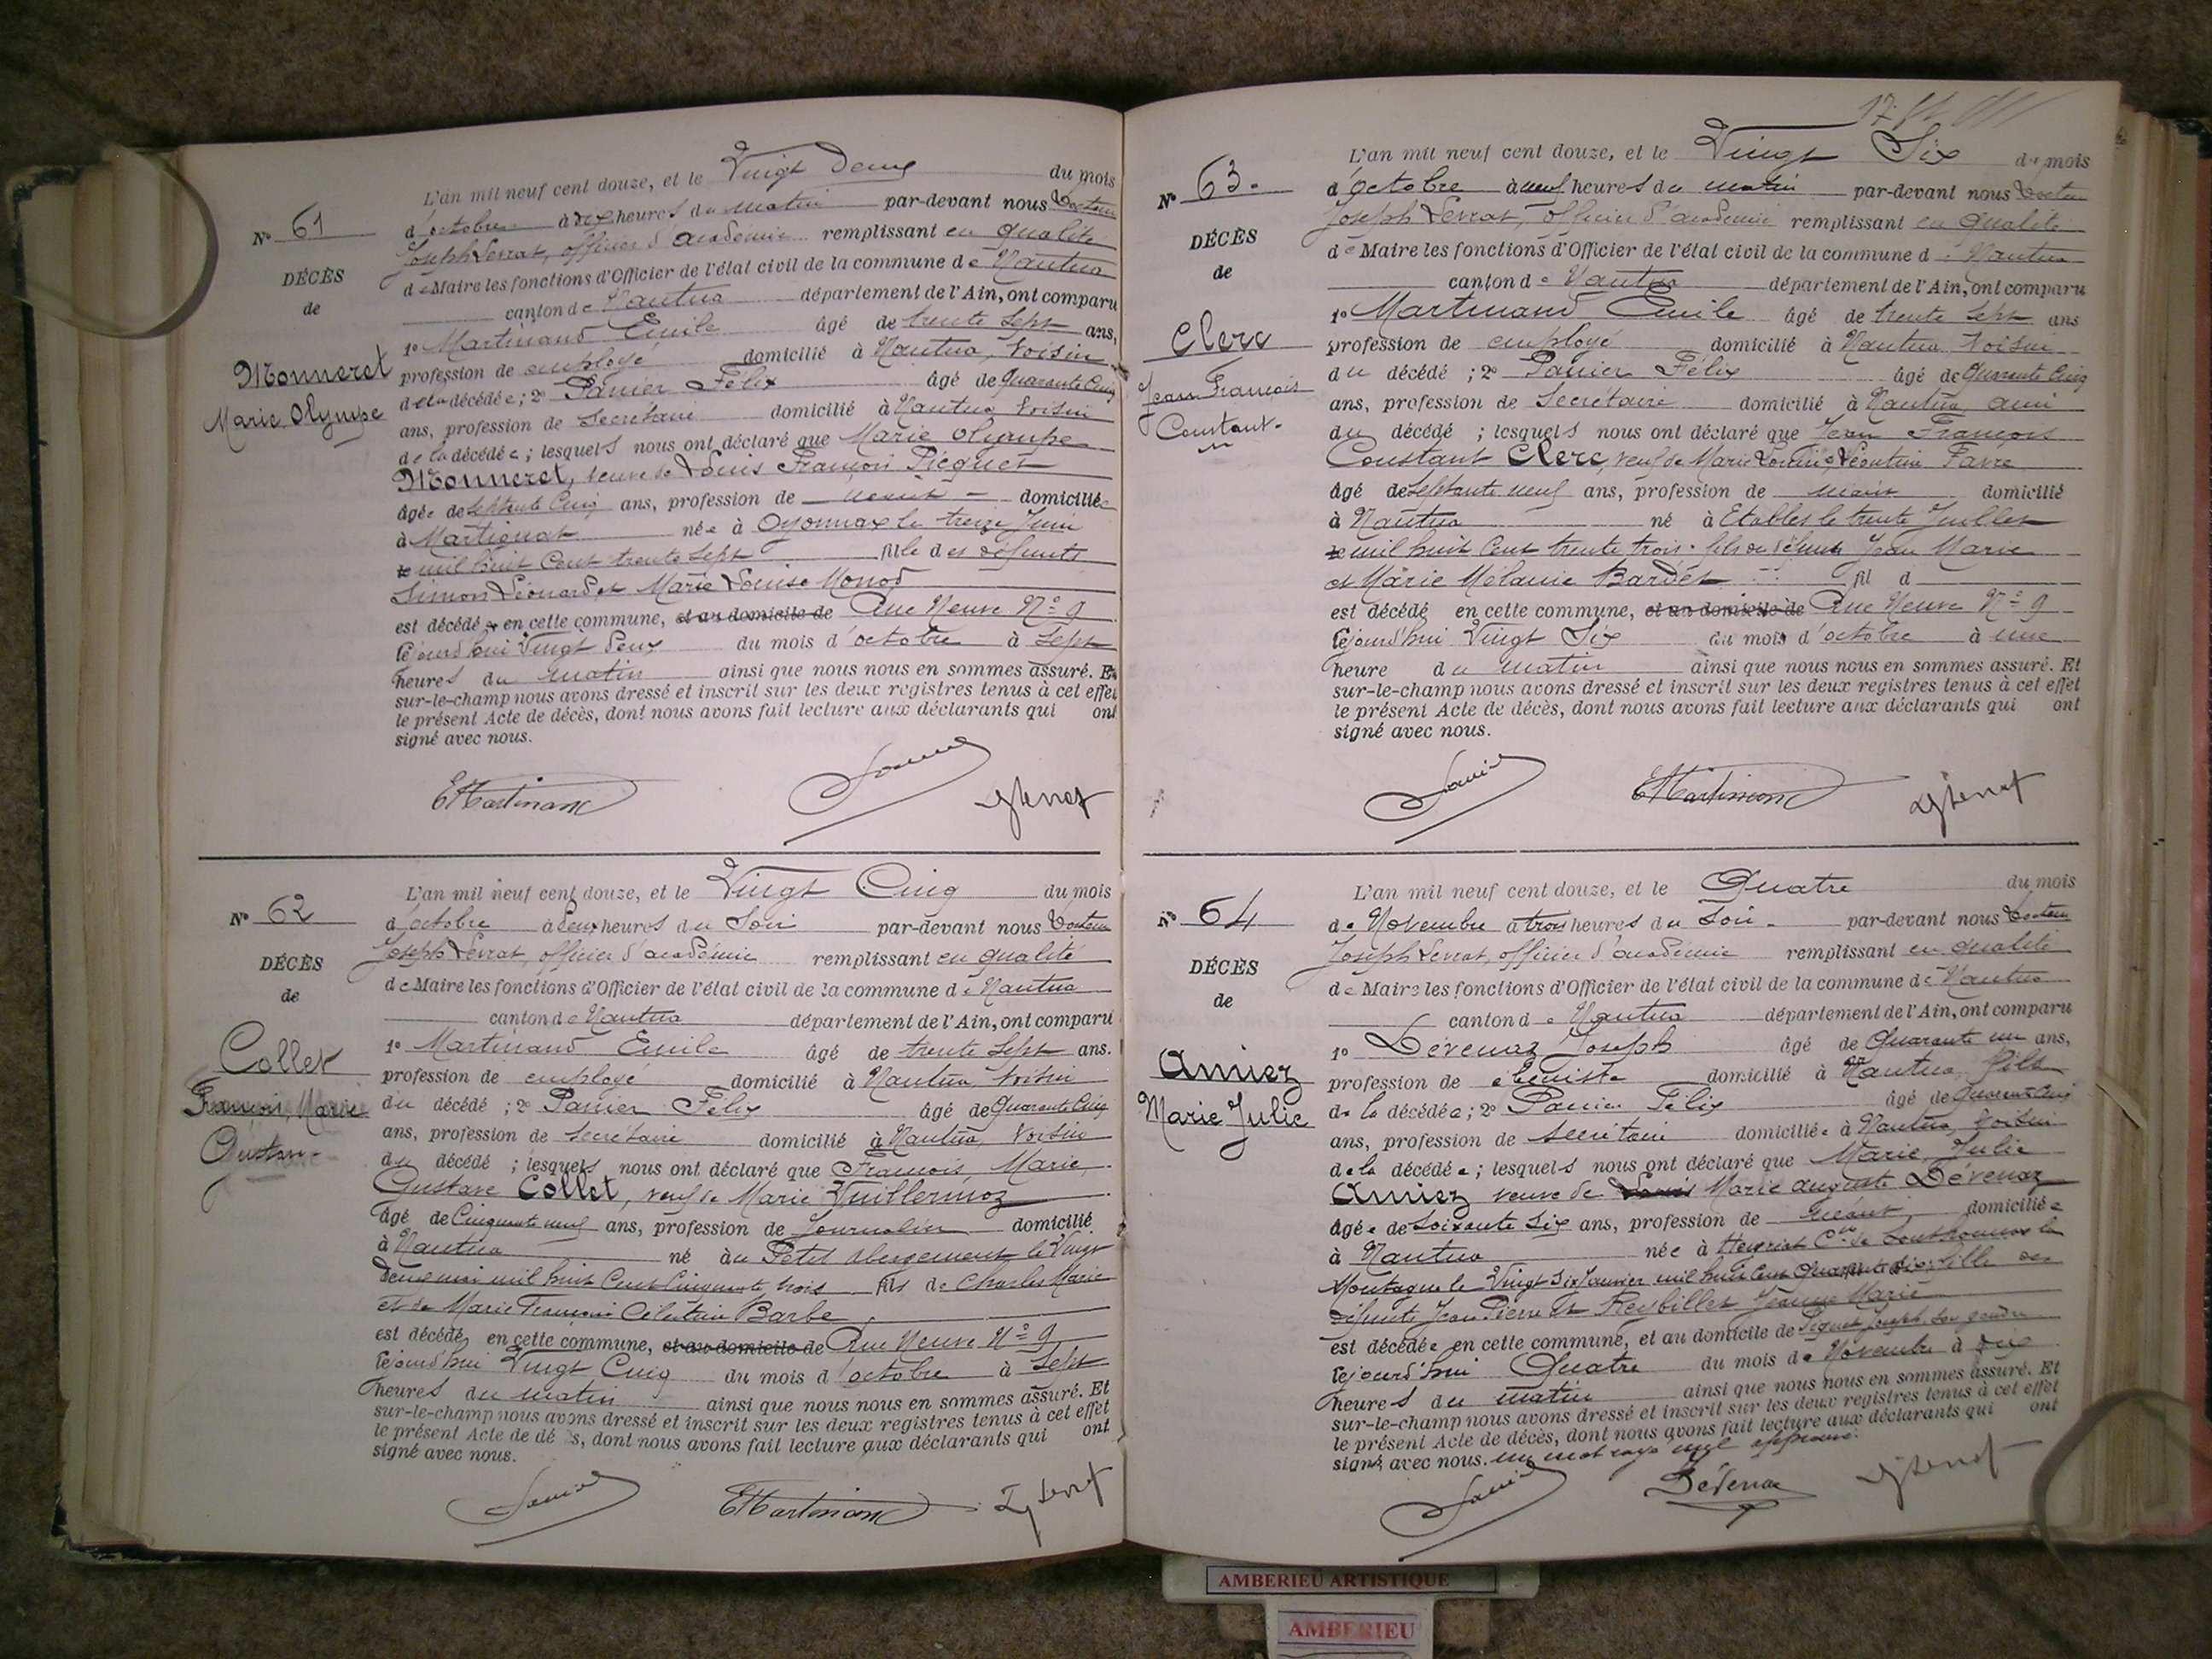 N° 61
DÉCÈS
de
Monneret
Marie Olympe
L'an mil neuf cent douze, et le Vingt Deux du mois
d'octobre à dix heures du matin par-devant nous Docteur
Joseph Levrat, officier d'académie remplissant en qualité
de Maire les fonctions d'Officier de l'état civil de la commune de Nantua
canton de Nantua département de l'Ain, ont comparu
1° Martinand Emile âgé de trente sept ans,
profession de employé domicilié à Nantua, voisin
de la décédée; 2° Panier Félix âgé de Quarante Cinq
ans, profession de Secrétaire domicilié à Nantua voisin
de la décédée; lesquels nous ont déclaré que Marie Olympe
Monneret, veuve de Louis François Picquet
âgée de septante Cinq ans, profession de néant domiciliée
à Martignat née à Oyonnax le treize Juin
mil huit Cent trente sept fille des défunts
Simon Léonard et Marie Louise Monod
est décédée en cette commune, et au domicile de Rue Neuve N° 9
cejourd'hui Vingt Deux du mois d'octobre à Sept
heures du matin ainsi que nous nous en sommes assuré. Et
sur-le-champ nous avons dressé et inscrit sur les deux registres tenus à cet effet
le présent Acte de décès, dont nous avons fait lecture aux déclarants qui ont
signé avec nous.
EMartinand
N° 62
DÉCÈS
de
Collet
François, Marie
Gustave
L'an mil neuf cent douze, et le Vingt Cinq du mois
d'octobre à deux heures du Soir par-devant nous Docteur
Joseph Levrat, officier d'académie remplissant en qualité
de Maire les fonctions d'Officier de l'état civil de la commune de Nantua
canton de Nantua département de l'Ain, ont comparu
1° Martinand Emile âgé de trente Sept ans.
profession de employé domicilié à Nantua, voisin
du décédé; 2° Panier Félix âgé de Quarante Cinq
ans, profession de Secrétaire domicilié à Nantua, voisin
du décédé; lesquels nous ont déclaré que François, Marie,
Gustave Collet, veuf de Marie Vuillermoz
âgé de Cinquante neuf ans, profession de Journalier domicilié
à Nantua né au Petit Abergement le Vingt
deux mai mil huit Cent Cinquante trois fils de Charles Marie
et de Marie Françoise Célestine Barbe
est décédé en cette commune, et au domicile de Rue Neuve N° 9
cejourd'hui Vingt Cinq du mois d'octobre à Sept
heures du matin ainsi que nous nous en sommes assuré. Et
sur-le-champ nous avons dressé et inscrit sur les deux registres tenus à cet effet
le présent Acte de dé s, dont nous avons fait lecture aux déclarants qui ont
signé avec nous.
EMartinand
N° 63.
DÉCÈS
de
Clerc
Jean François
Constant.
L'an mil neuf cent douze, et le Vingt Six du mois
d'octobre à neuf heures du matin par-devant nous Docteur
Joseph Levrat, officier d'académie remplissant en Qualité
de Maire les fonctions d'Officier de l'état civil de la commune de Nantua
canton de Nantua département de l'Ain, ont comparu
1° Martinand Emile âgé de trente sept ans
profession de employé domicilié à Nantua voisin
du décédé; 2° Panier Félix âgé de Quarante Cinq
ans, profession de Secrétaire domicilié à Nantua ami
du décédé; lesquels nous ont déclaré que Jean François
Constant Clerc, veuf de Marie Léontine Favre
âgé de Septante neuf ans, profession de néant domicilié
à Nantua né à Etables le trente Juillet
mil huit Cent trente trois. fils de défunts Jean Marie
et Marie Mélanie Bardet fil d
est décédé en cette commune, et au domicile de Rue Neuve N° 9
cejourd'hui Vingt Six du mois d'octobre à une
heure du matin ainsi que nous nous en sommes assuré. Et
sur-le-champ nous avons dressé et inscrit sur les deux registres tenus à cet effet
le présent Acte de décès, dont nous avons fait lecture aux déclarants qui ont
signé avec nous.
EMartinand
N° 64
DÉCÈS
de
Amiez
Marie Julie
L'an mil neuf cent douze, et le Quatre du mois
de Novembre à trois heures du Soir. par-devant nous Docteur
Joseph Levrat, officier d'académie remplissant en qualité
de Maire les fonctions d'Officier de l'état civil de la commune de Nantua
canton de Nantua département de l'Ain, ont comparu
1° Dévenaz Joseph âgé de Quarante un ans,
profession de ébéniste domicilié à Nantua, fils
de la décédée; 2° Panier Félix âgé de Quarante Cinq
ans, profession de Secrétaire domicilié à Nantua, voisin
de la décédée; lesquels nous ont déclaré que Marie, Julie
Amiez veuve de Louis Marie Auguste Dévenaz
âgée de Soixante Six ans, profession de néant, domiciliée
à Nantua née à
Montagne le Vingt Six Janvier mil huit Cent Quarante Six, fille des
défunts Jean Pierre et Reybillet Jeanne Marie
est décédée en cette commune, et au domicile de Piquet Joseph, son gendre
cejourd'hui Quatre du mois de Novembre à dix
heures du matin ainsi que nous nous en sommes assuré. Et
sur-le-champ nous avons dressé et inscrit sur les deux registres tenus à cet effet
le présent Acte de décès, dont nous avons fait lecture aux déclarants qui ont
signé avec nous. un mot rayé nul approuvé.
Dévenaz
AMBERIEU ARTISTIQUE
AMBERIEU